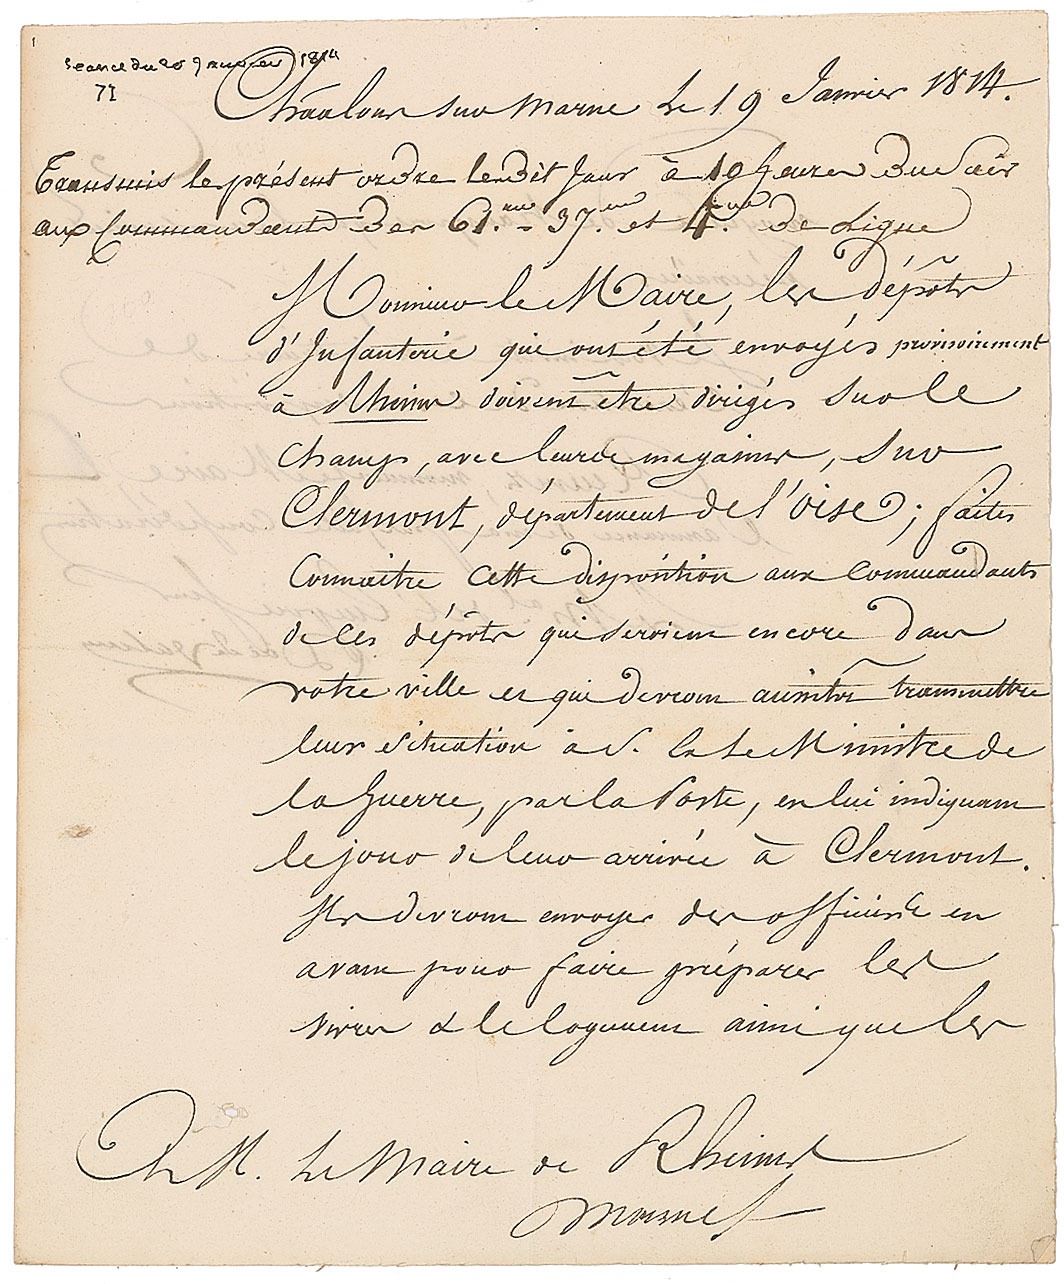 Séance du 20 Janvier 1814
71
Chaalons sur Marne Le 19 Janvier 1814.
Transmis le présent ordre ledit Jour à 10 heures du Soir
aux Commandants des 61.me - 37.me et 4.me de Ligne
Monsieur le Maire, les dépôts
d'Infanterie qui ont été envoyés provisoirement
à Rheims doivent être dirigés sur le
champ, avec leurs magasins, sur
Clermont, département de l'Oise ; faites
Connaitre cette disposition aux commandants
de ces dépôts qui seroient encore dans
votre ville et qui devront aussitôt transmettre
leur situation à S. Ex. le Ministre de
la Guerre, par la Poste, en lui indiquant
le jour de leur arrivée à Clermont.
Ils devront envoyer des officiers en
avant pour faire préparer les
vivres & le logement ainsi que les
A M. Le Maire de Rheims
Marne